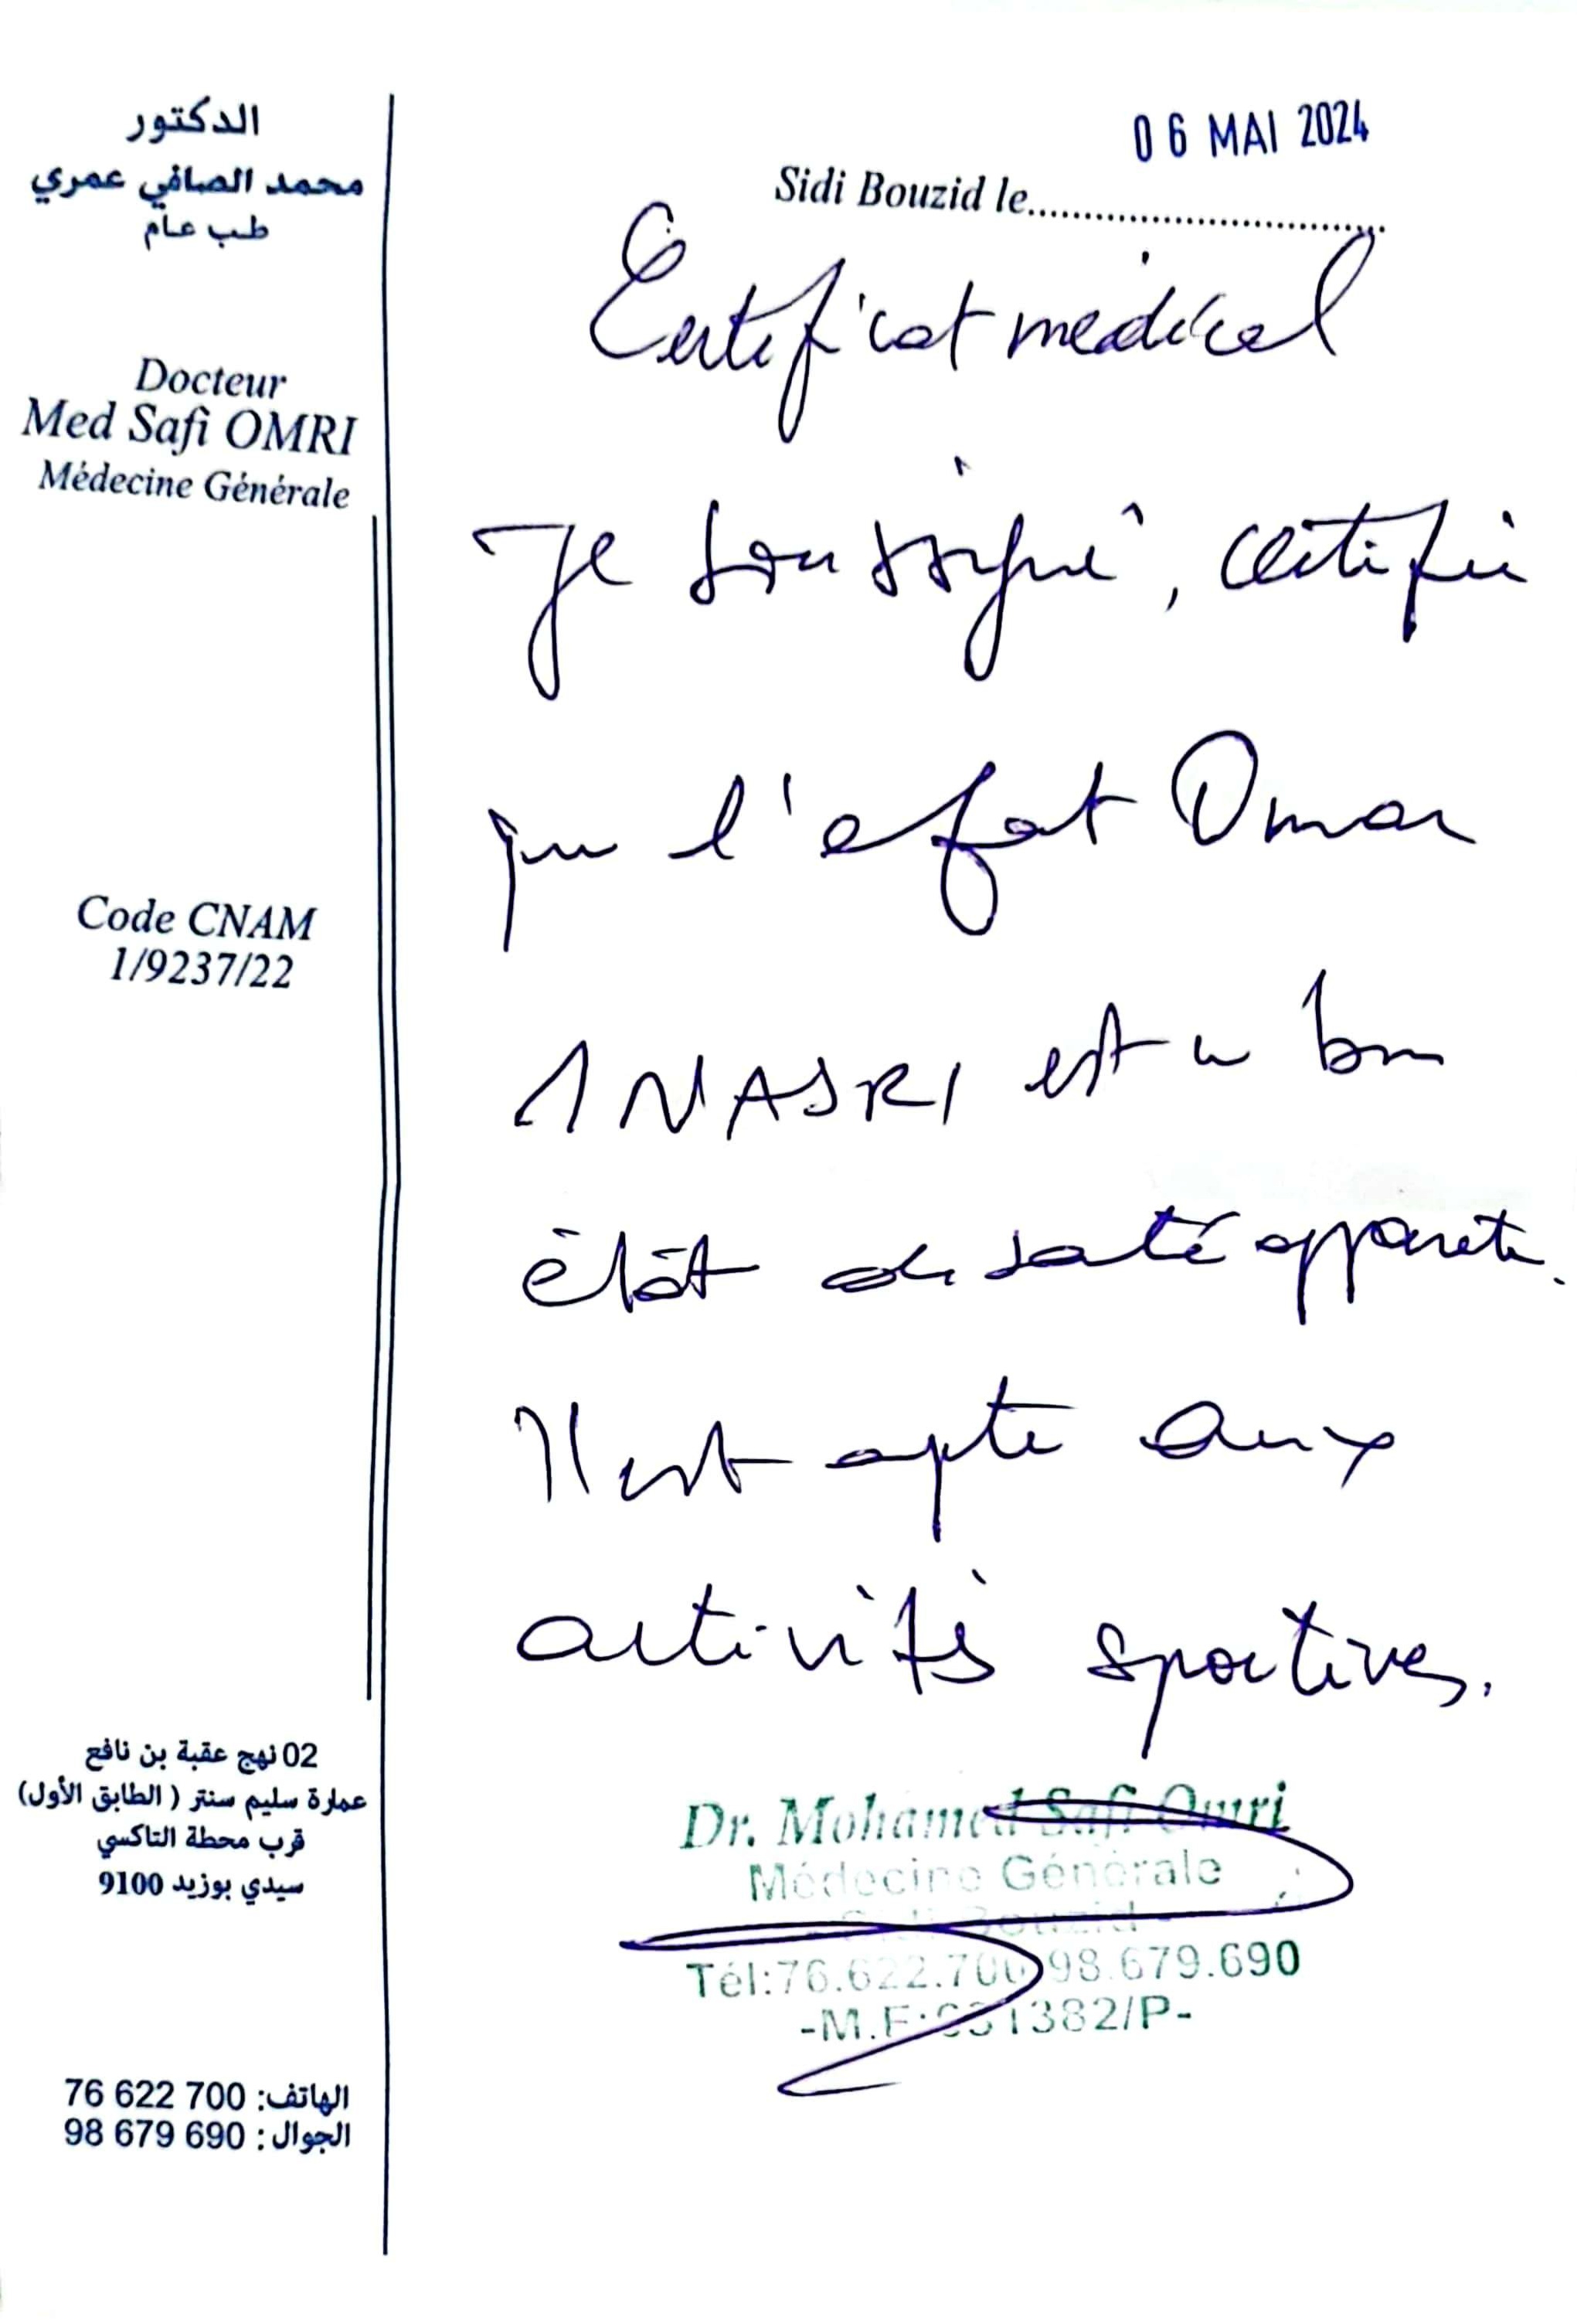 الدكتور
محمد الصافي عمري
طب عام
Docteur
Med Safi OMRI
Médecine Générale
Code CNAM
1/9237/22
02 نهج عقبة بن نافع
عمارة سليم سنتر ( الطابق الأول)
قرب محطة التاكسي
سيدي بوزيد 9100
الهاتف: 76 622 700
الجوال : 98 679 690
06 MAI 2024
Sidi Bouzid le
Certificat médical
Je soussigné, certifie
que l'efat Omar
NASRI est en bon
état de santé apparente.
Il est apte aux
activités sportives.
Dr. Mohamed Safi Omri
Médecine Générale
Sidi Bouzid
Tél:76.622.700 98.679.690
-M.F: 1382/P-